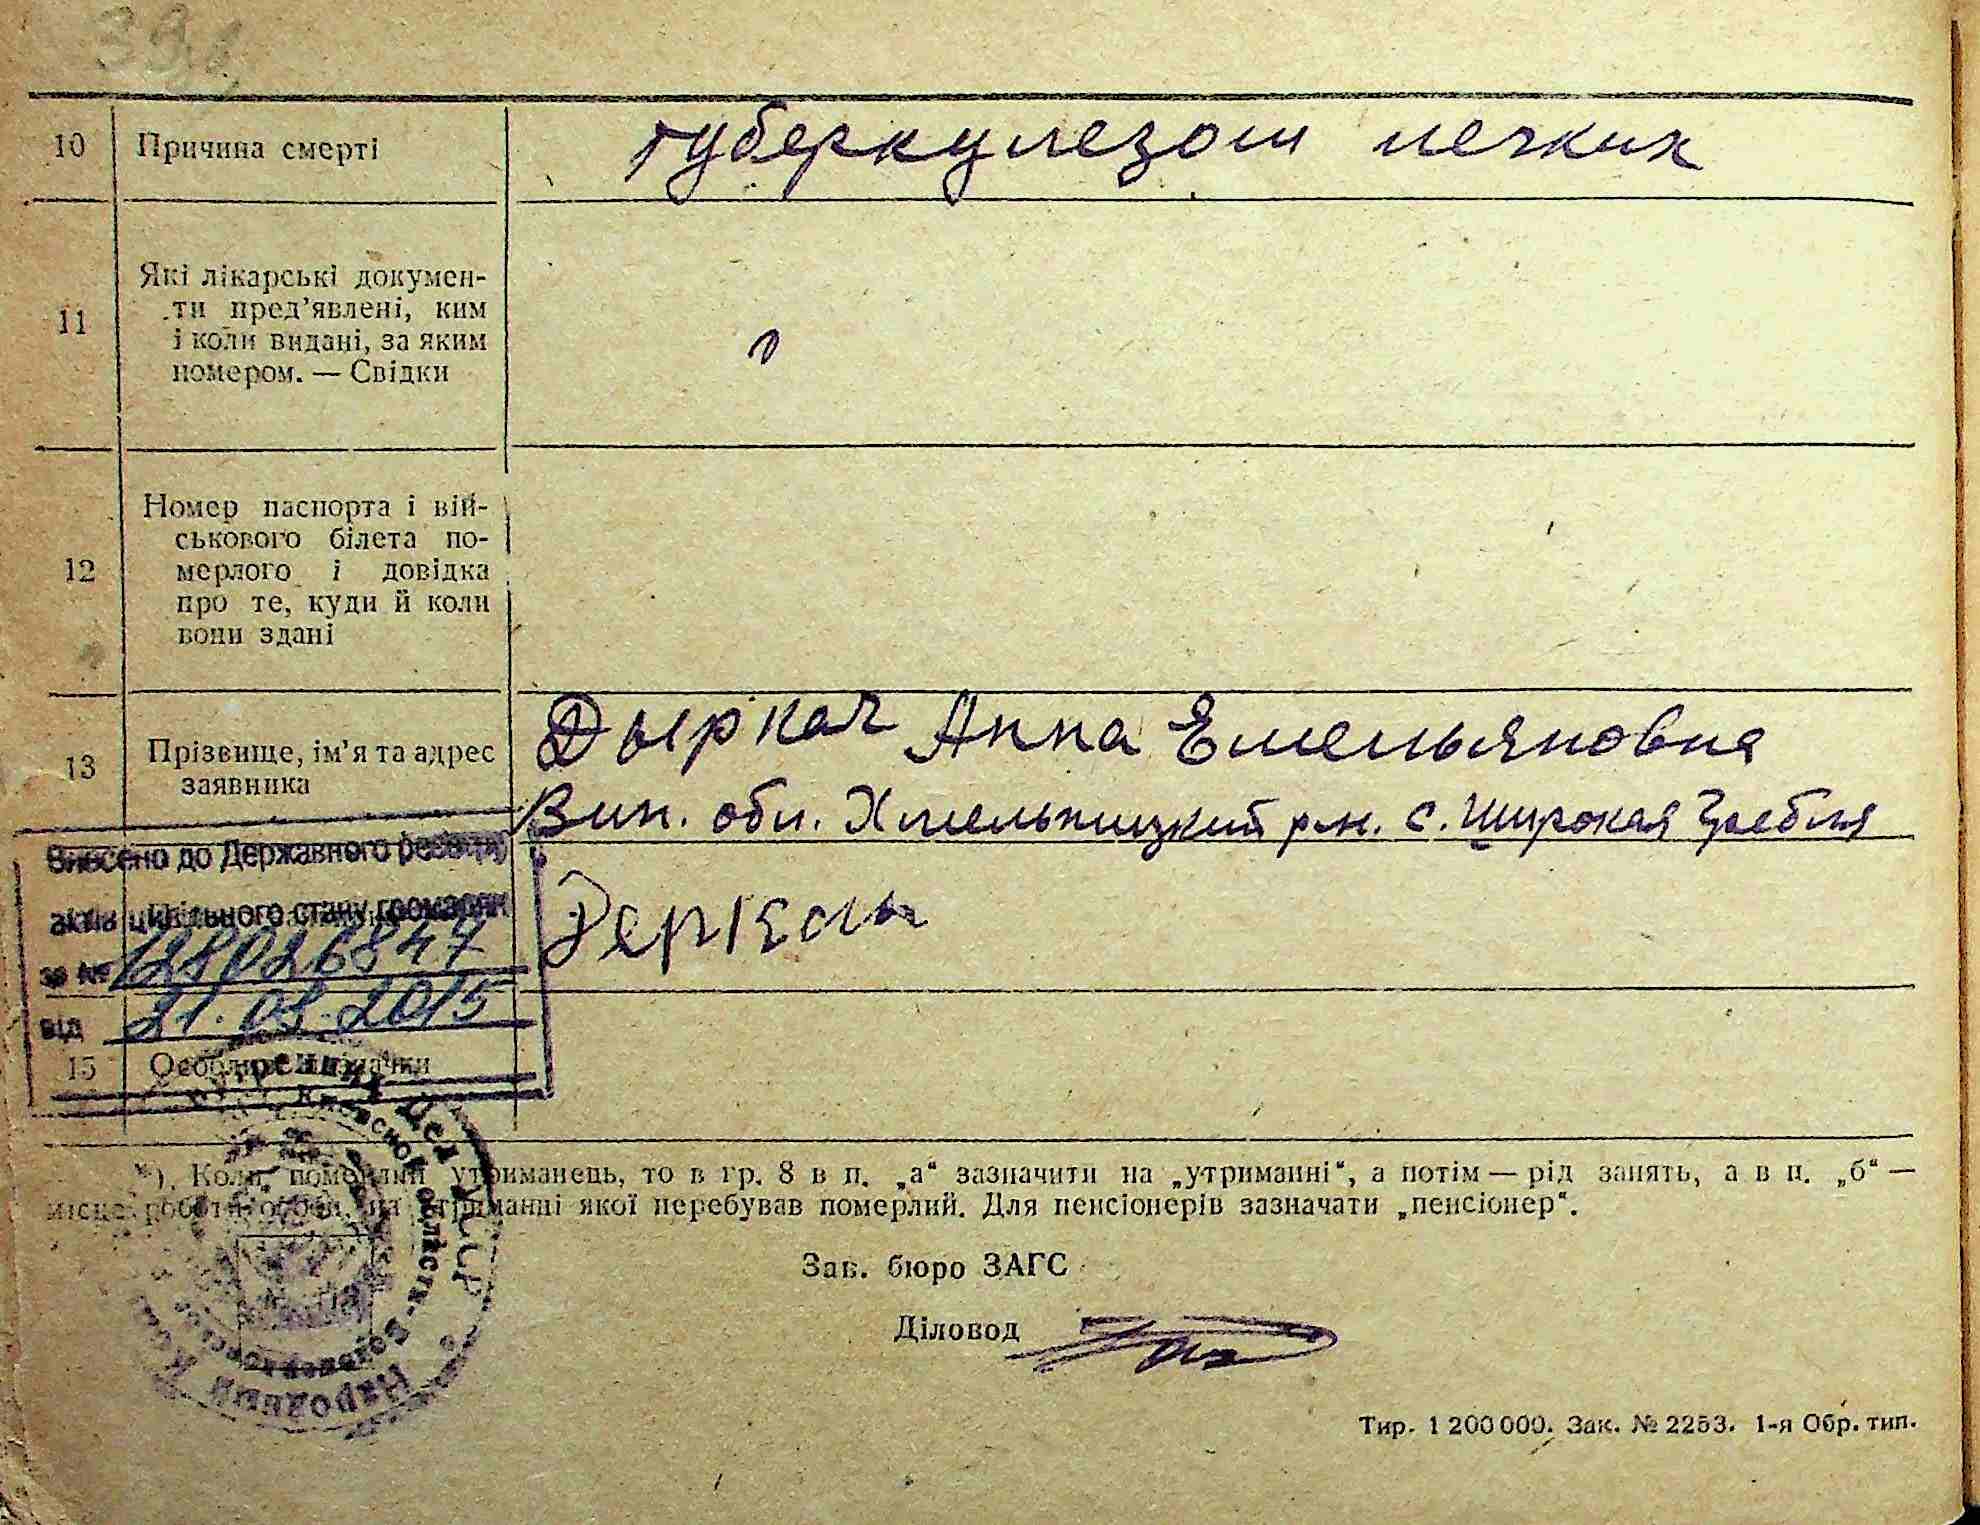 10 Причина смерті туберкулезом легких
11 Які лікарські докумен-
ти пред’явлені, ким
і коли видані, за яким
номером. — Свідки
12 Номер паспорта і вій-
ськового білета по-
мерлого і довідка
про те, куди й коли
вони здані
13 Прізвище, ім’я та адрес
заявника
Дыркач Анна Емельяновна
Вин. обл. Хмельницкий р-н. с. Широкая Гребля
Внесено до Державного реєстру
актів цивільного стану громадян
за № 128026847
від 21.08.2015
15 Особливі відзначки
*) Коли померлий утриманець, то в гр. 8 в п. „а“ зазначити на „утриманні“, а потім — рід занять, а в п. „б“ —
місце роботи особи, на утриманні якої перебував померлий. Для пенсіонерів зазначати „пенсіонер“.
Зав. бюро ЗАГС
Діловод
Народный
Тир. 1 200 000. Зак. № 2253. 1-я Обр. тип.